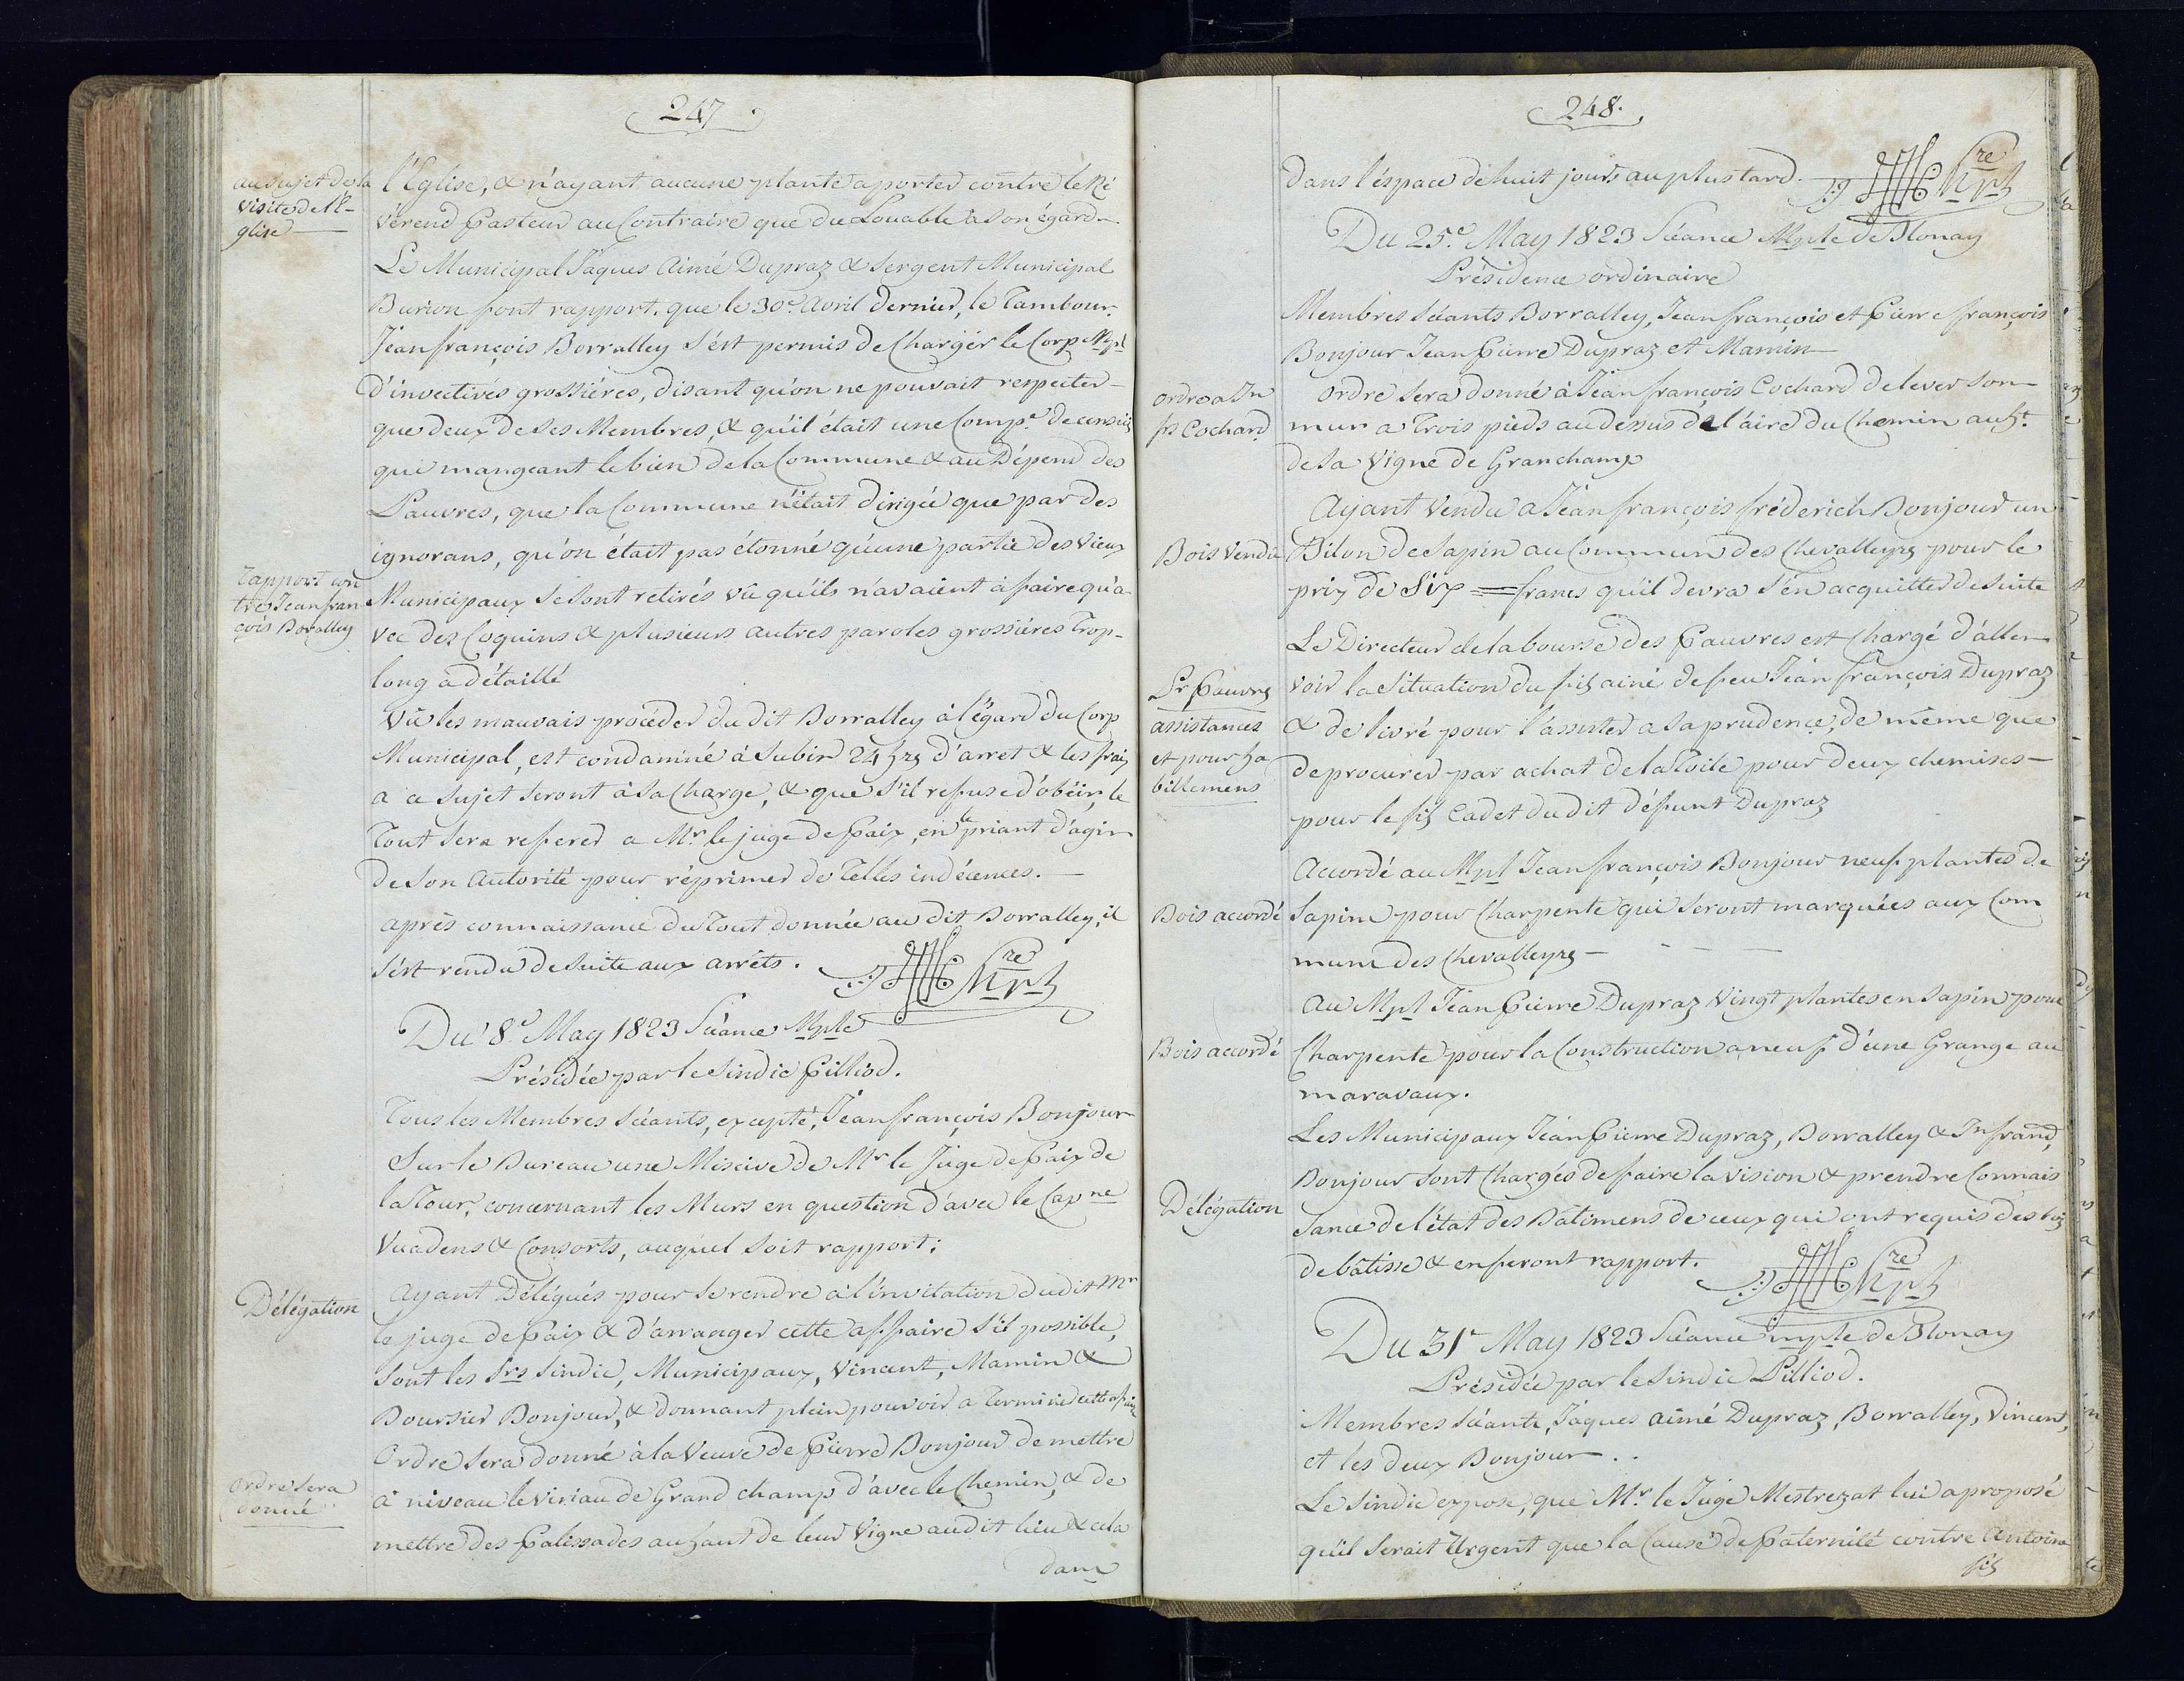 247
au sujet de la
visite de l'E-
glise
l'Eglise, & n'ayant aucune plante aporter contre le Ré
vérend Pasteur au Contraire que du Louable à son égard
Le Municipal Jâques Aimé Dupraz & Sergent Municipal
Burion font rapport. que le 30e. Avril dernier, le Tambour.
Jean françois Borralley s'ést permis de Charger le Corp Mpl
d'invectives grossiéres, disant qu'on ne pouvait respecter
que deux de ses Membres, & qu'il était une Comp.e de
qui mangeant le bien de la Commune & au Dépend des
Pauvres, que la Commune n'était dirigée que par des
ignorans, qu'on était pas étonné qu'une partie des vieux
rapport con
tre Jean fran
çois Borralley
Municipaux se sont retirés vû qu'ils n'avaient à faire qu'a
vec des Coquins & plusieurs autres paroles grossiéres Trop
long à détaillé
Vû les mauvais procéder du dit Borralley à l'égard du Corp
Municipal, est condamné à Subir 24 hrs d'arret & les fraix
a ce sujet seront à sa Charge, & que s'il refuse d'obéir, le
Tout sera referer a Mr. le juge de Paix, en le priant d'agir
de son Autorité pour réprimer de Telles indécences.
après connaissance du Tout donnée au dit Borralley, il
s'ést rendu de suite aux arrêts.
Du 8e May 1823 Séance Mple
Présidée par le Sindic Pilliod.
Tous les Membres Séants, excepté, Jean françois Bonjour
Sur le Bureau une Miscive de Mr le Juge de Paix de
la Tour, concernant les Murs en question d'avec le Capne
Vuadens & Consorts, auquel soit rapport;
Délégation
Ayant Délégués pour se rendre à l'invitation dudit Mr
le juge de Paix & d'arranger cette affaire s'il possible,
sont les Srs Sindic, Municipaux, Vincent, Mamin &
Boursier Bonjour, & donnant plein pouvoir a Terminer cette affaire
Ordre sera
donné
Ordre sera donné à la Veuve de Pierre Bonjour de mettre
à niveau le de Grand champ d'avec le Chemin, & de
mettre des Palissades au haut de leur Vigne audit lieu & cela
dans
248.
dans l'éspace de huit jours au plus tard.
Du 25e. May 1823 Séance Mple de Blonay
Présidence ordinaire
Membres Séants Borralley, Jean françois et Pierre françois
Bonjour Jean Pierre Dupraz et Mamin
ordre a Jn
frs Cochard
Ordre sera donné à Jean françois Cochard de lever son
mur a Trois pieds au dessus de l'aire du Chemin au ht.
de sa Vigne de Granchamp
Ayant Vendu a Jean françois fréderich Bonjour un
Bois Vendu
Bilon de Sapin au Commun des Chevalleyrs pour le
prix de Six = francs qu'il devra s'en acquitter de suite
Le Directeur de la bourse des Pauvres est Chargé d'aller
Pr Pauvres
assistances
et pour ha
billemens
voir la Situation du fils ainé de feu Jean françois Dupraz
& de livré pour l'assister a sa prudence, de même que
de procurer par achat de la Toile pour deux chemises
pour le fils Cadet du dit défunt Dupraz
Accordé au Mpl Jean françois Bonjour neuf plantes de
Bois accordé
Sapin pour Charpente qui seront marquées aux Com
mun des Chevalleyrs
Au Mpl Jean Pierre Dupraz Vingt plantes en Sapin pour
Bois accordé
Charpente pour la Construction a neuf d'une Grange au
maravaux.
Les Municipaux Jean Pierre Dupraz, Borralley & Jn franc,
Bonjour sont Chargés de faire la vision & prendre Connais
Délégation
sance de l'état des Bâtimens de ceux qui ont requis des bois
de bâtisse & en feront rapport.
Du 31e May 1823 Séance mple de Blonay
Présidée par le Sindic Pilliod.
Membres Séants, Jâques aimé Dupraz, Borralley, Vincent,
et les deux Bonjour . .
Le Sindic expose, que Mr. le Juge Mestrezat lui a proposé
qu'il serait Urgent que la Cause de Paternité contre Antoine
fils